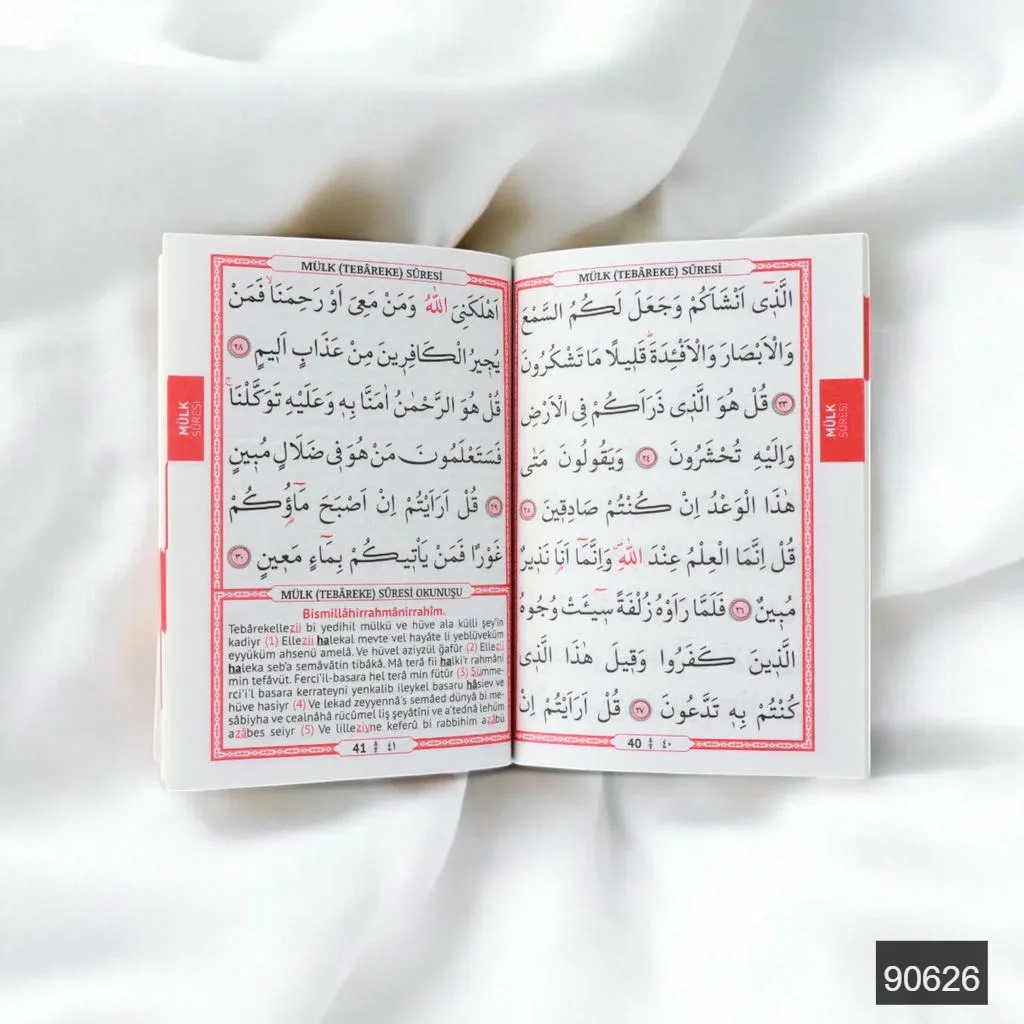 MÜLK (TEBÂREKE) SÛRESİ
الَّذ۪ٓى اَنْشَاَكُمْ وَجَعَلَ لَكُمُ السَّمْعَ
وَالْاَبْصَارَ وَالْاَفْـِٔدَةَۜ قَل۪يلًا مَا تَشْكُرُونَ
﴿٢٣﴾ قُلْ هُوَ الَّذ۪ى ذَرَاَكُمْ فِى الْاَرْضِ
وَاِلَيْهِ تُحْشَرُونَ ﴿٢٤﴾ وَيَقُولُونَ مَتٰى
هٰذَا الْوَعْدُ اِنْ كُنْتُمْ صَادِق۪ينَ ﴿٢٥﴾
قُلْ اِنَّمَا الْعِلْمُ عِنْدَ اللّٰهِۖ وَاِنَّمَٓا اَنَا۬ نَذ۪يرٌ
مُب۪ينٌ ﴿٢٦﴾ فَلَمَّا رَاَوْهُ زُلْفَةً س۪ٓيـَٔتْ وُجُوهُ
الَّذ۪ينَ كَفَرُوا وَق۪يلَ هٰذَا الَّذ۪ى
كُنْتُمْ بِه۪ تَدَّعُونَ ﴿٢٧﴾ قُلْ اَرَاَيْتُمْ اِنْ
40 ٤٠
MÜLK
SÛRESİ
MÜLK (TEBÂREKE) SÛRESİ
اَهْلَكَنِىَ اللّٰهُ وَمَنْ مَعِىَ اَوْ رَحِمَنَاۙ فَمَنْ
يُج۪يرُ الْكَافِر۪ينَ مِنْ عَذَابٍ اَل۪يمٍ ﴿٢٨﴾
قُلْ هُوَ الرَّحْمٰنُ اٰمَنَّا بِه۪ وَعَلَيْهِ تَوَكَّلْنَاۚ
فَسَتَعْلَمُونَ مَنْ هُوَ ف۪ى ضَلَالٍ مُب۪ينٍ
﴿٢٩﴾ قُلْ اَرَاَيْتُمْ اِنْ اَصْبَحَ مَٓاؤُ۬كُمْ
غَوْرًا فَمَنْ يَاْت۪يكُمْ بِمَٓاءٍ مَع۪ينٍ ﴿٣٠﴾
MÜLK (TEBÂREKE) SÛRESİ OKUNUŞU
Bismillâhirrahmânirrahîm.
Tebârekellezii bi yedihil mülkü ve hüve ala külli şey'in
kadiyr (1) Ellezii halekal mevte vel hayâte li yeblüveküm
eyyüküm ahsenü amelâ. Ve hüvel aziyzül ğafûr (2) Ellezii
haleka seb'a semâvâtin tibâkâ. Mâ terâ fii halki'r rahmâni
min tefâvüt. Ferci'il-basara hel terâ min fütûr (3) Sümme-
rci'i'l basara kerrateyni yenkalib ileykel basaru hâsiev ve
hüve hasiyr (4) Ve lekad zeyyennâ's semâed dünyâ bi me-
sâbiyha ve cealnâhâ rücûmel liş şeyâtîni ve a'tednâ lehüm
azâbes seiyr (5) Ve lilleziyne keferû bi rabbihim azâbü
41 ٤١
MÜLK
SÛRESİ
90626